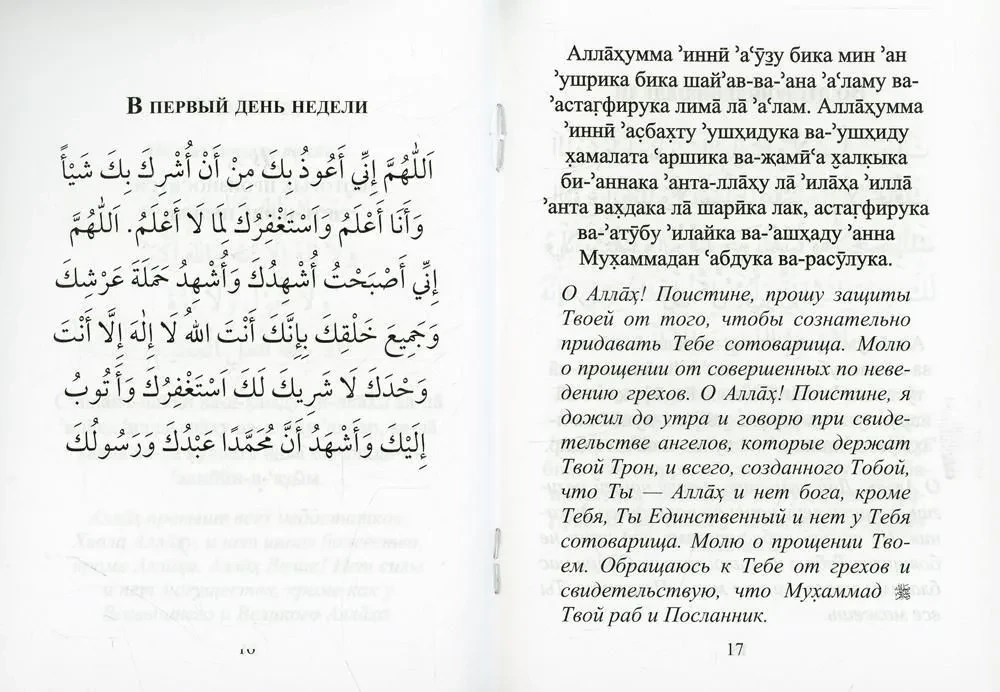 В ПЕРВЫЙ ДЕНЬ НЕДЕЛИ
اَللّٰهُمَّ إِنِّي أَعُوذُ بِكَ مِنْ أَنْ أُشْرِكَ بِكَ شَيْأً
وَأَنَا أَعْلَمُ وَاَسْتَغْفِرُكَ لِمَا لَا أَعْلَمُ. اَللّٰهُمَّ
إِنِّي أَصْبَحْتُ أُشْهِدُكَ وَأُشْهِدُ حَمَلَةَ عَرْشِكَ
وَجَمِيعَ خَلْقِكَ بِإِنَّكَ أَنْتَ اللهُ لَا إِلٰهَ إِلَّا أَنْتَ
وَحْدَكَ لَا شَرِيكَ لَكَ اَسْتَغْفِرُكَ وَأَتُوبُ
إِلَيْكَ وَأَشْهَدُ أَنَّ مُحَمَّدًا عَبْدُكَ وَرَسُولُكَ
Аллāҳумма ’иннӣ ’а‘ӯз̱у бика мин ’ан
’ушрика бика шай’ав-ва-’ана ’а‘ламу ва-
’астаг̣фирука лимā лā ’а‘лам. Аллāҳумма
’иннӣ ’ас̣бах̣ту ’ушҳидука ва-’ушҳиду
х̣амалата ‘аршика ва-җамӣ‘а х̮алк̣ыка
би-’аннака ’анта-ллāҳу лā ’илāҳа ’иллā
’анта вах̣дака лā шарӣка лак, астаг̣фирука
ва-’атӯбу ’илайка ва-’ашҳаду ’анна
Мух̣аммадан ‘абдука ва-расӯлука.
О Аллāҳ! Поистине, прошу защиты
Твоей от того, чтобы сознательно
придавать Тебе сотоварища. Молю
о прощении от совершенных по неве-
дению грехов. О Аллāҳ! Поистине, я
дожил до утра и говорю при свиде-
тельстве ангелов, которые держат
Твой Трон, и всего, созданного Тобой,
что Ты — Аллāҳ и нет бога, кроме
Тебя, Ты Единственный и нет у Тебя
сотоварища. Молю о прощении Тво-
ем. Обращаюсь к Тебе от грехов и
свидетельствую, что Мух̣аммад ﷺ
Твой раб и Посланник.
17